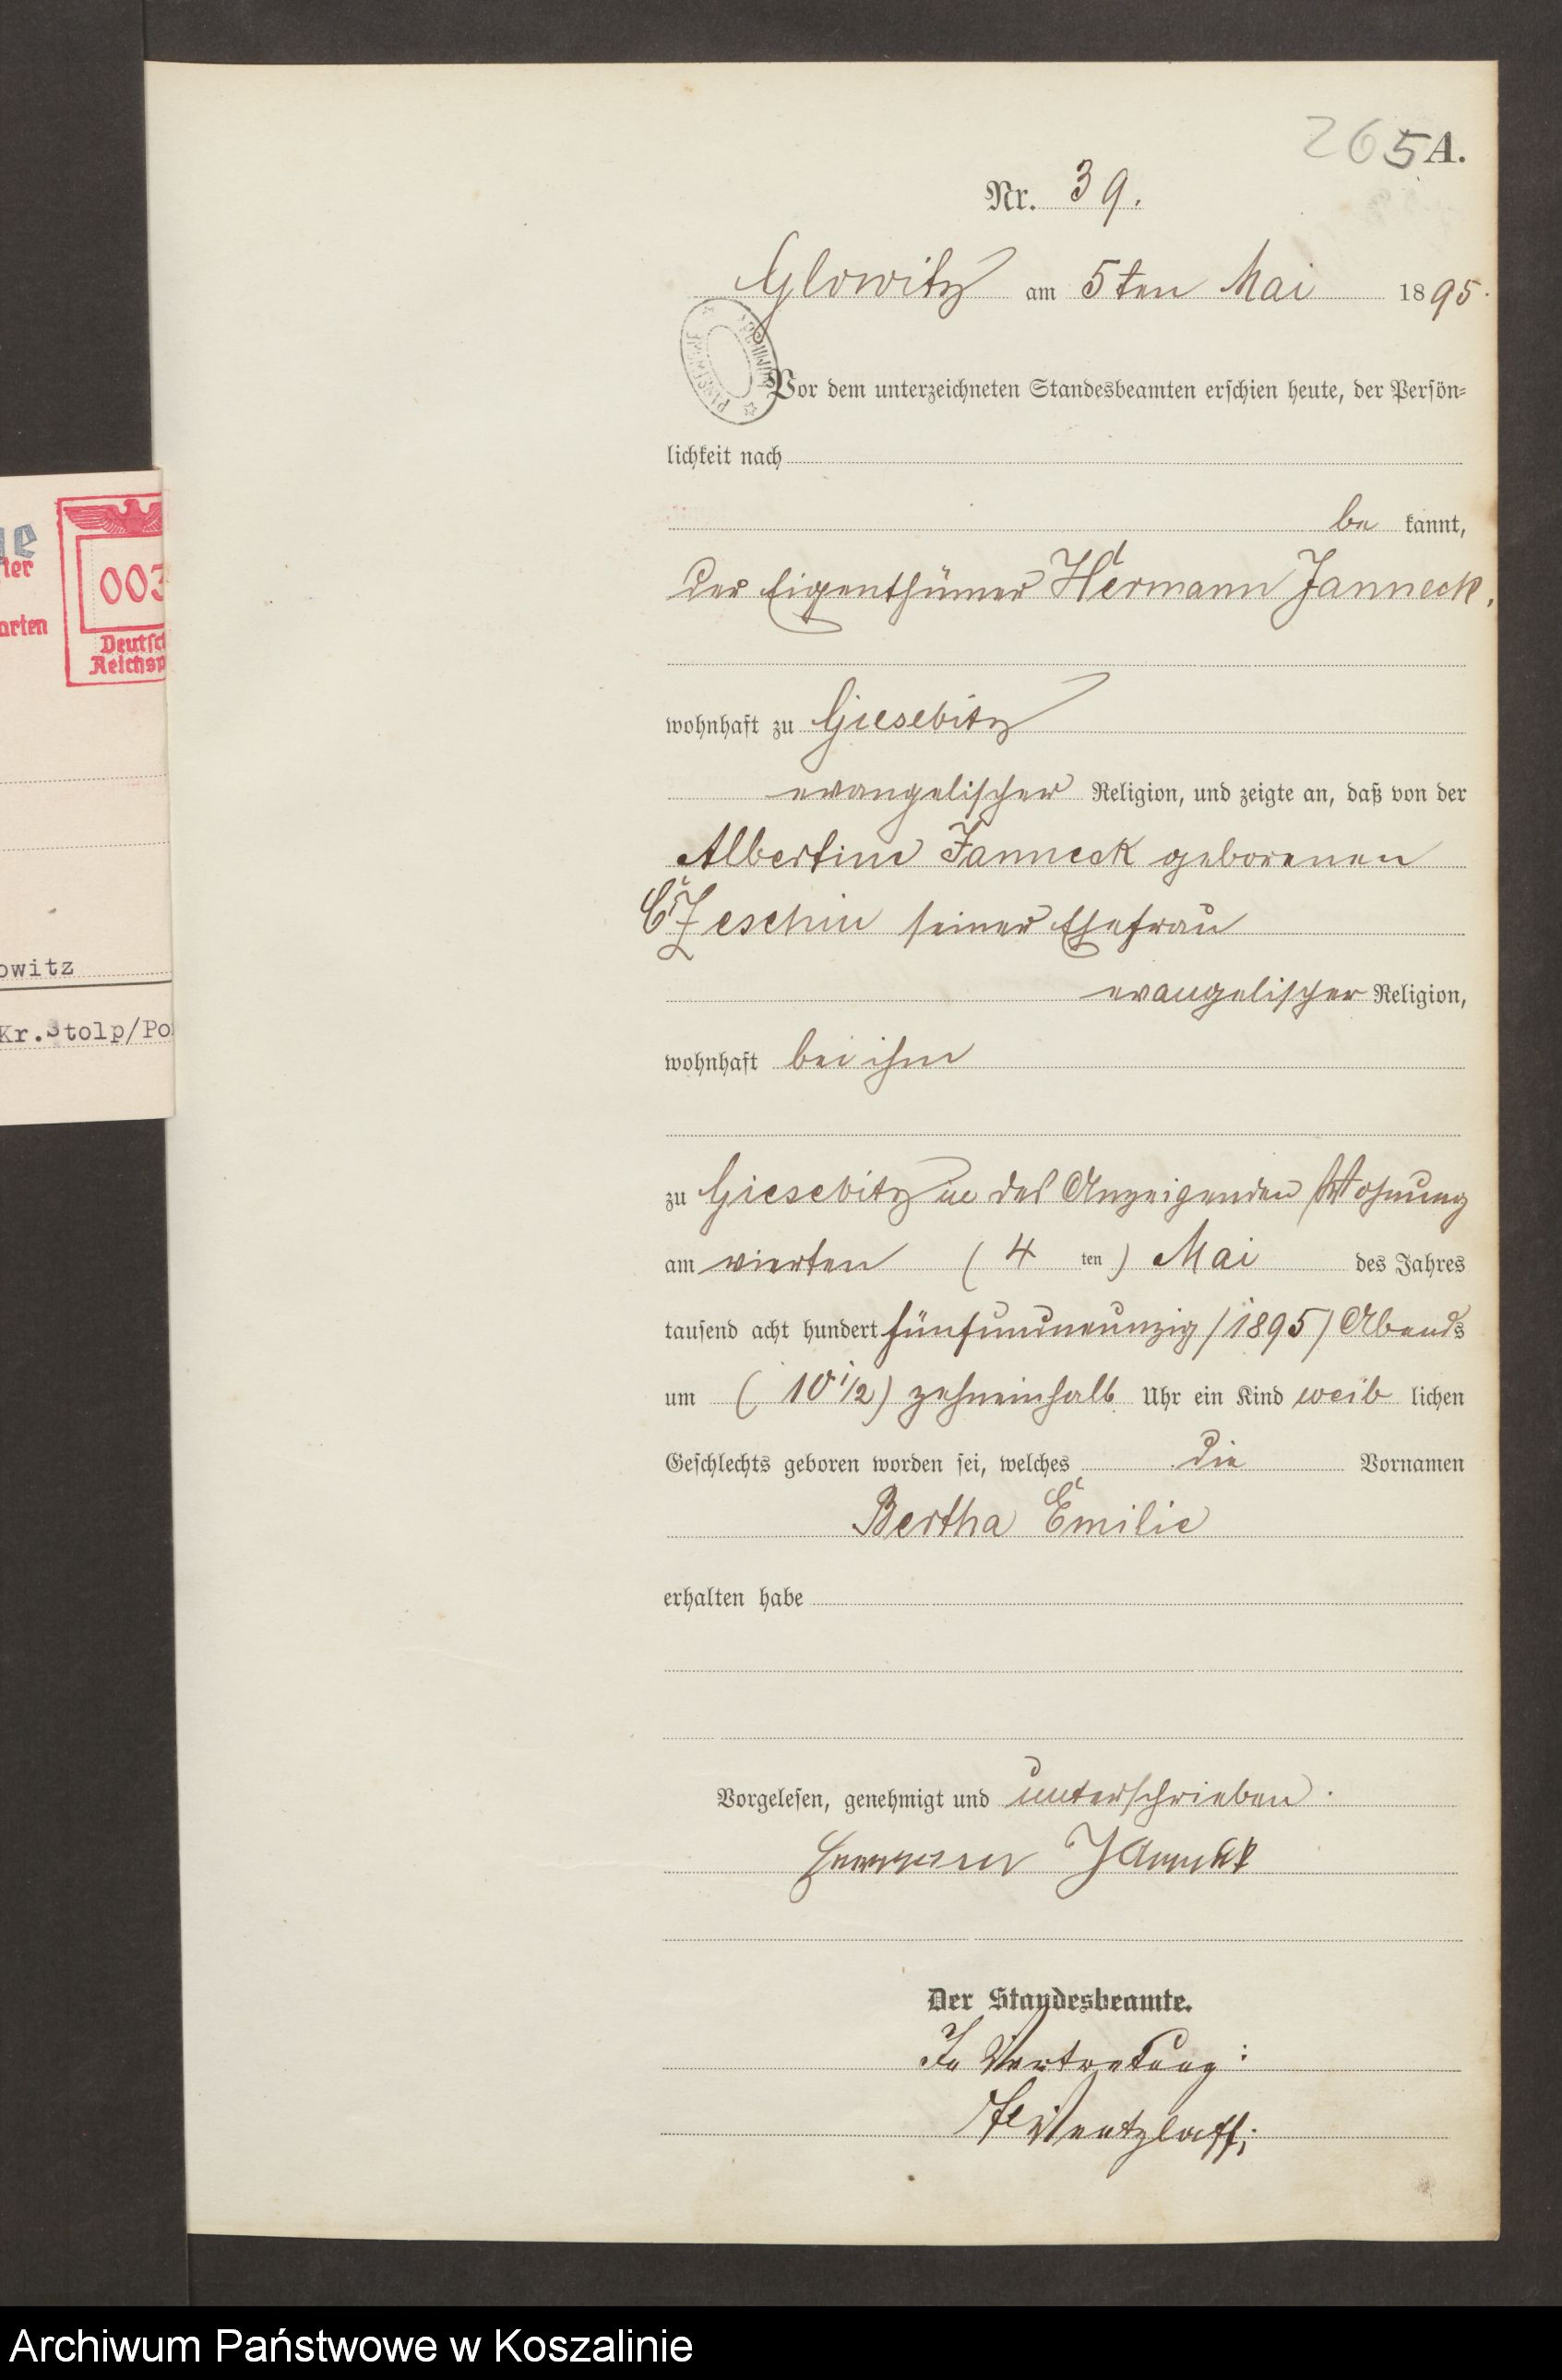 265 A.
Nr. 39.
Glowitz am 5ten Mai 1895.
Vor dem unterzeichneten Standesbeamten erschien heute, der Persön-
lichkeit nach
be kannt,
der Eigenthümer Hermann Janneck,
wohnhaft zu Giesebitz
evangelischer Religion, und zeigte an, daß von der
Albertine Janneck geborenen
Czeschin seiner Ehefrau
evangelischer Religion,
wohnhaft bei ihm
zu Giesebitz in des Anzeigenden Wohnung
am vierten (4 ten) Mai des Jahres
tausend acht hundert fünfundneunzig /1895/ Abends
um (10 1/2) zehneinhalb Uhr ein Kind weib lichen
Geschlechts geboren worden sei, welches die Vornamen
Bertha Emilie
erhalten habe
Vorgelesen, genehmigt und unterschrieben.
Hermann Janneck
Der Standesbeamte.
In Vertretung:
Wentzlaff.
ter
003
arten
Deutsc
Reichsp
owitz
Kr.Stolp/Po
Archiwum Państwowe w Koszalinie